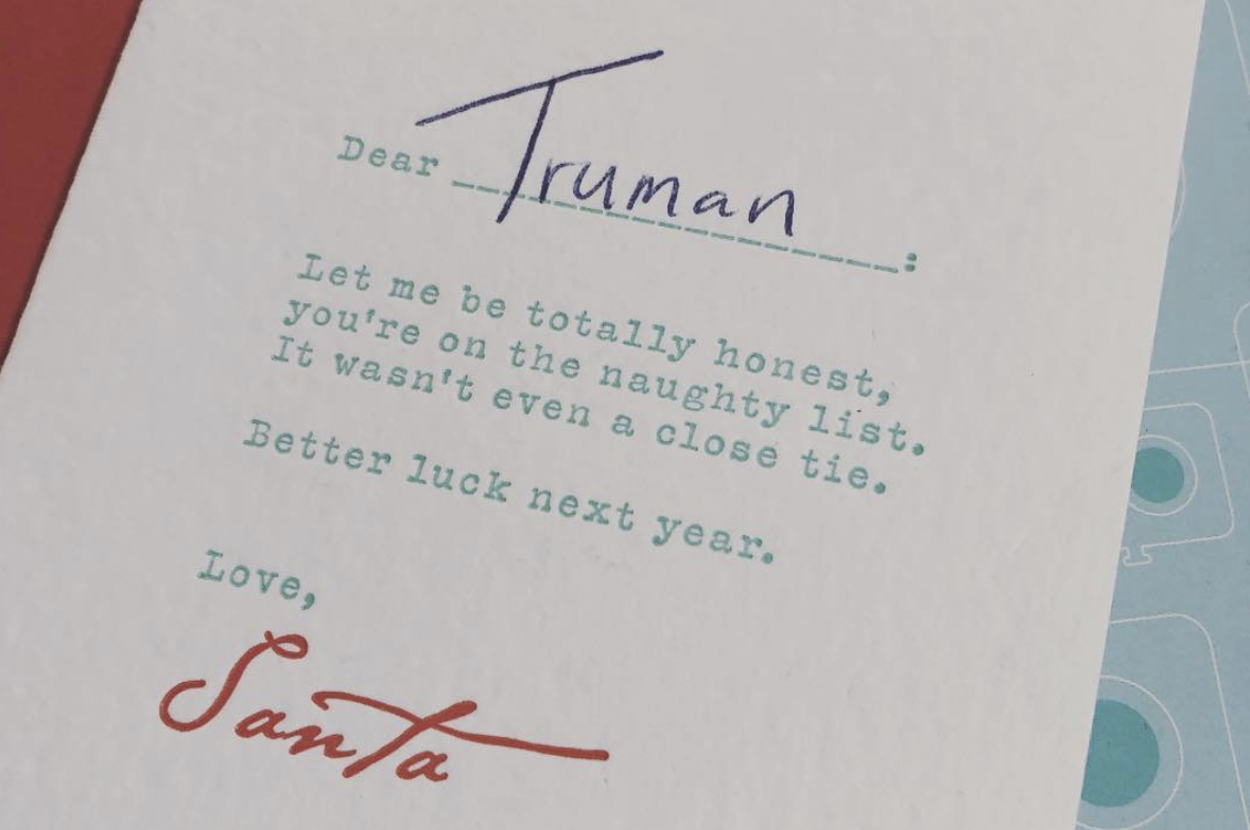 Dear Truman:
Let me be totally honest,
you're on the naughty list.
It wasn't even a close tie.
Better luck next year.
Love,
Santa